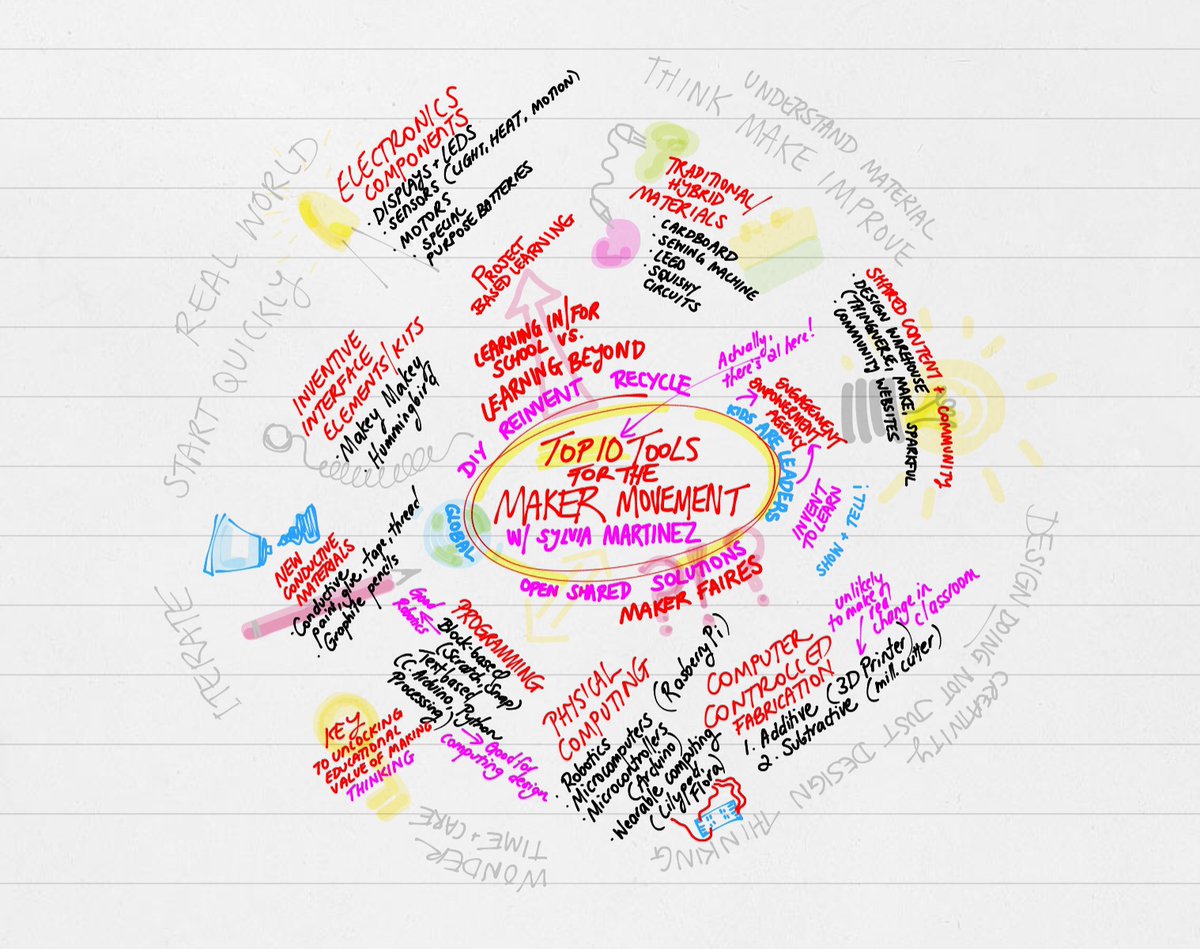 TOP 10 TOOLS
FOR THE
MAKER MOVEMENT
W/ SYLVIA MARTINEZ
Actually,
there's 21 here!
DIY REINVENT RECYCLE
KIDS ARE LEADERS
GLOBAL
OPEN SHARED SOLUTIONS
MAKER FAIRES
ENGAGEMENT
EMPOWERMENT
AGENCY
INVENT
TO LEARN
SHOW + TELL!
LEARNING IN/FOR
SCHOOL VS.
LEARNING BEYOND
PROJECT
BASED LEARNING
ELECTRONICS
COMPONENTS
· DISPLAYS + LEDS
· SENSORS (LIGHT, HEAT, MOTION)
· MOTORS
· SPECIAL
PURPOSE BATTERIES
TRADITIONAL/
HYBRID
MATERIALS
· CARDBOARD
· SEWING MACHINE
· LEGO
· SQUISHY
CIRCUITS
SHARED CONTENT + COMMUNITY
· DESIGN WAREHOUSE
(THINGIVERSE, MAKE, SPARKFUL
· COMMUNITY WEBSITES
COMPUTER
CONTROLLED
FABRICATION
1. Additive (3D Printer)
2. Subtractive (mill.cutter)
unlikely
to make a
real
change in
classroom
PHYSICAL
COMPUTING
· Robotics
· Microcomputers (RasberryPi)
· Microcontrollers
(Arduino)
· Wearable computing
(Lilypad,
Flora)
PROGRAMMING
Block-based
(Scratch, Snap)
Text based
(C. Arduino, Python
Processing)
Good
Robotics
Good for
computing design
KEY
TO UNLOCKING
EDUCATIONAL
VALUE OF MAKING
THINKING
NEW
CONDUCTIVE
MATERIALS
· Conductive
paint, glue, tape, thread
· Graphite pencils
INVENTIVE
INTERFACE
ELEMENTS/KITS
· Makey Makey
· Hummingbird
START QUICKLY
REAL WORLD
THINK MAKE IMPROVE
UNDERSTAND MATERIAL
DESIGN DOING NOT JUST DESIGN THINKING
CREATIVITY
WONDER
TIME + CARE
ITERATE